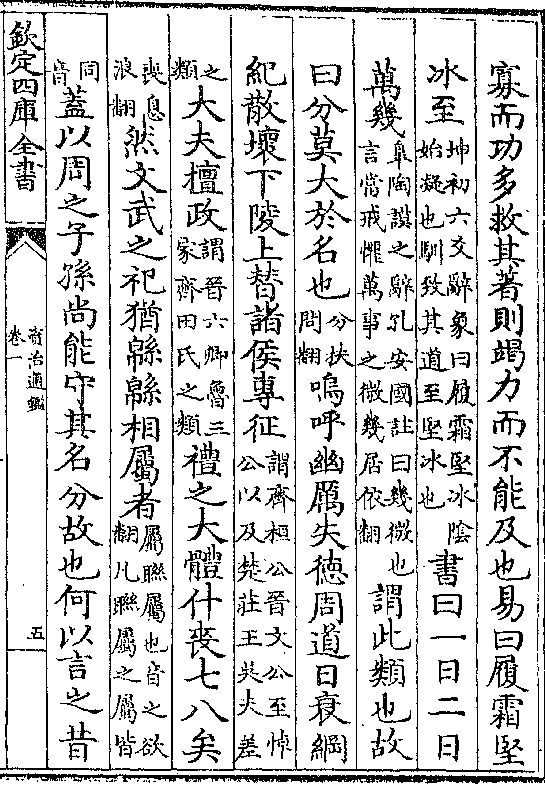 寡而功多救其著則竭力而不能及也易曰履霜堅
冰至坤初六爻辭象曰履霜堅冰陰始凝也馴致其道至堅冰也書曰一日二日
萬幾臯陶謨之辭孔安國註曰幾微也言當戒懼萬事之微幾居依翻謂此類也故
曰分莫大於名也分扶問翻嗚呼幽厲失德周道日衰綱
紀散壞下陵上替諸侯專征謂齊桓公晉文公至悼公以及楚莊王吳夫差
之類大夫擅政謂晉六卿魯三家齊田氏之類禮之大體什喪七八矣
喪息浪翻然文武之祀猶緜緜相屬者屬聯屬也音之欲翻凡聯屬之屬皆
同音蓋以周之子孫尚能守其名分故也何以言之昔
欽定四庫全書
資治通鑑
卷一
五